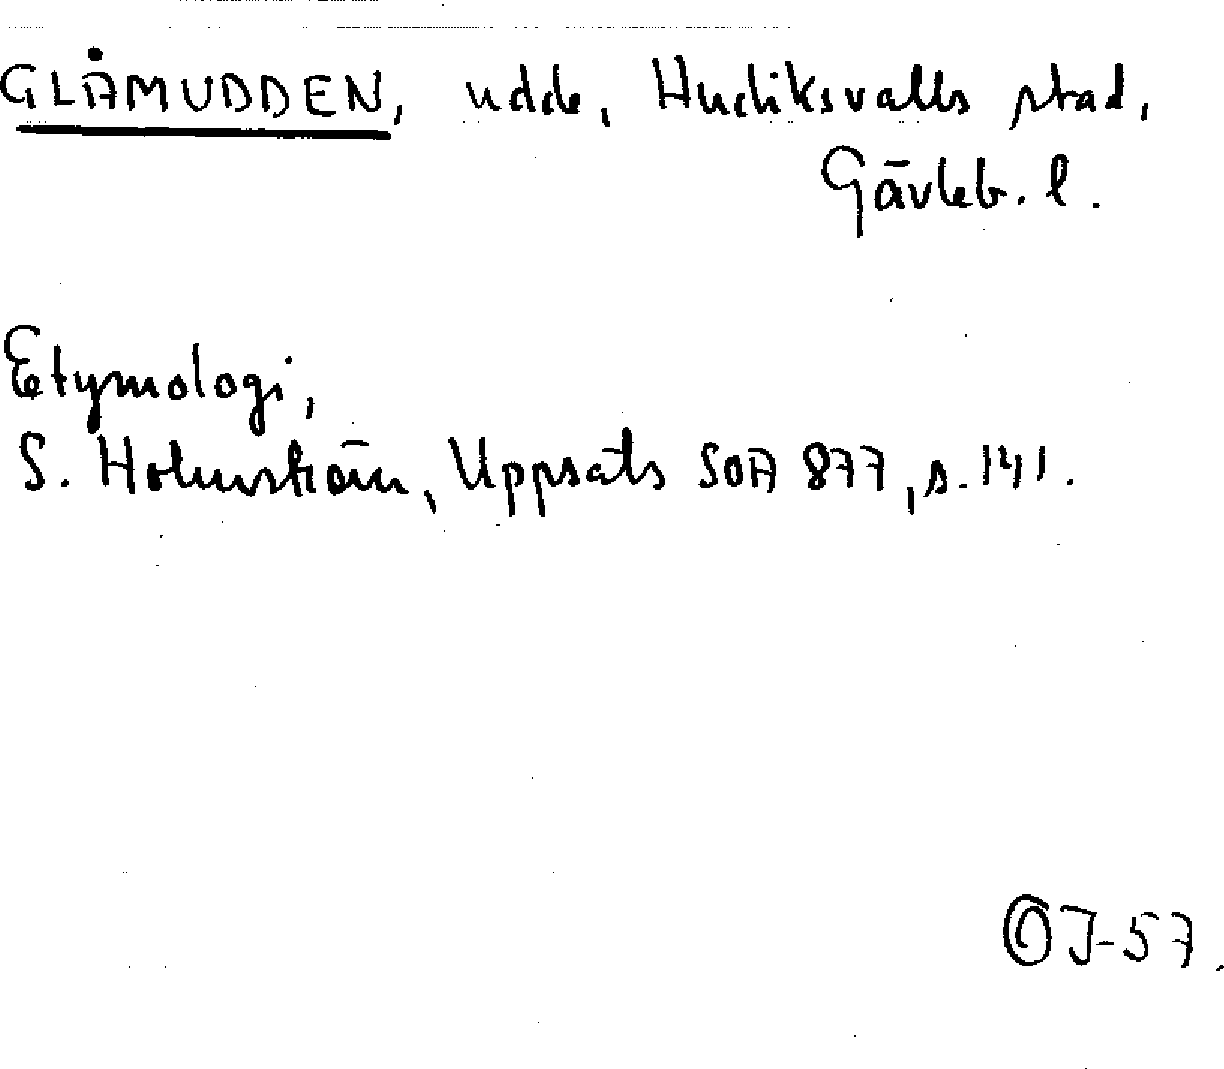 GLÅMUDDEN, udde, Hudiksvalls stad,
Gävleb. l.
Etymologi,
S. Holmström, Uppsats SOA 877, s. 141.
OJ-57.